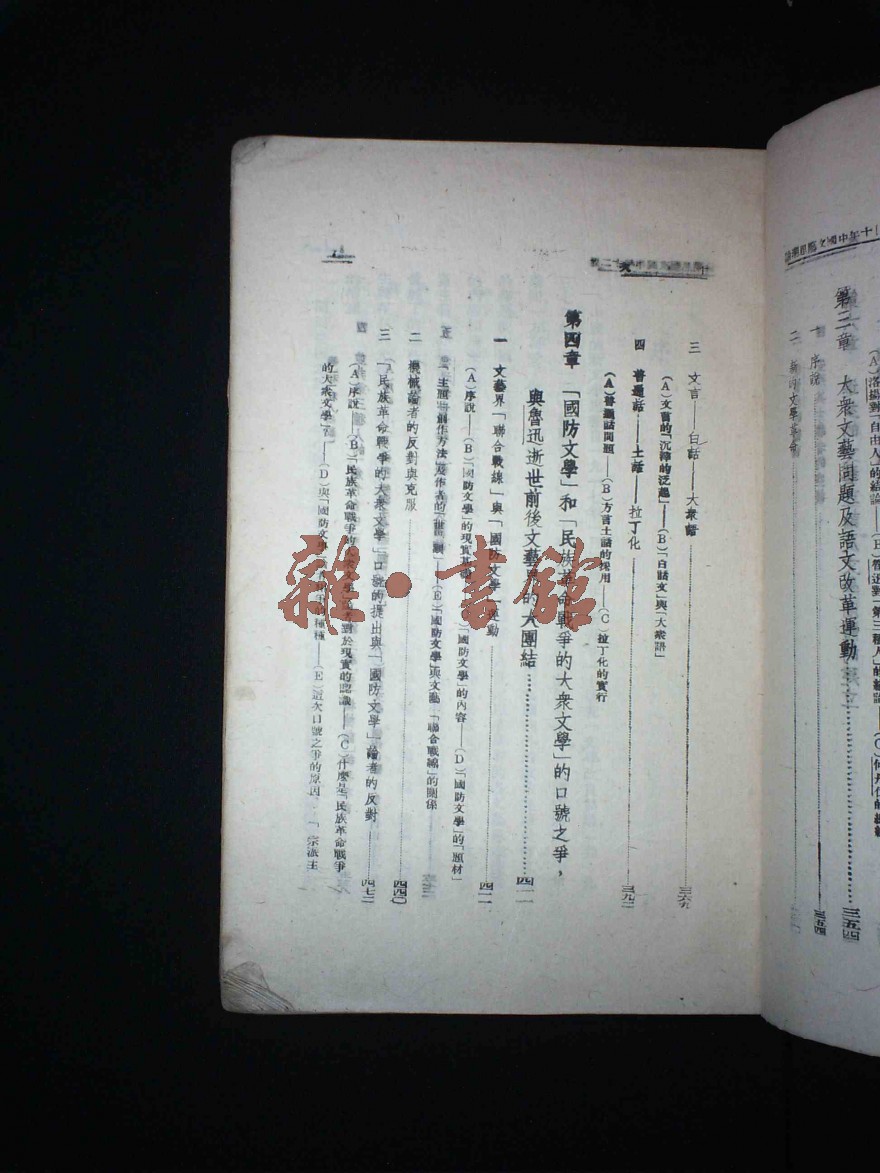 第三章 大衆文藝問題及語文改革運動 三五四
一 序說 三五四
三 文言——白話——大衆語 三六九
(A)文言的「沉滓的泛起」——(B)「白話文」與「大衆語」
四 普通話——土話——拉丁化 三九二
(A)普通話問題——(B)方言土話的採用——(C)拉丁化的實行
第四章 「國防文學」和「民族革命戰爭的大衆文學」的口號之爭，
與魯迅逝世前後文藝界的大團結 四一一
一 文藝界「聯合戰線」與「國防文學」運動 四一一
(A)序說——(B)「國防文學」的現實基礎 「國防文學」的內容——(D)「國防文學」的「題材」
「主題」創作方法 作者的 (E)「國防文學」與文藝「聯合戰線」的關係
二 機械論者的反對與克服 四四〇
三 「民族革命戰爭的大衆文學」口號的提出與「國防文學」論者的反對 四七二
(A)序說——(B)「民族革命戰爭的大衆文學」 對於現實的認識——(C)什麼是「民族革命戰爭
的大衆文學」？——(D)與「國防文學」 種種——(E)這次口號之爭的原因 「宗派主
雜·書館